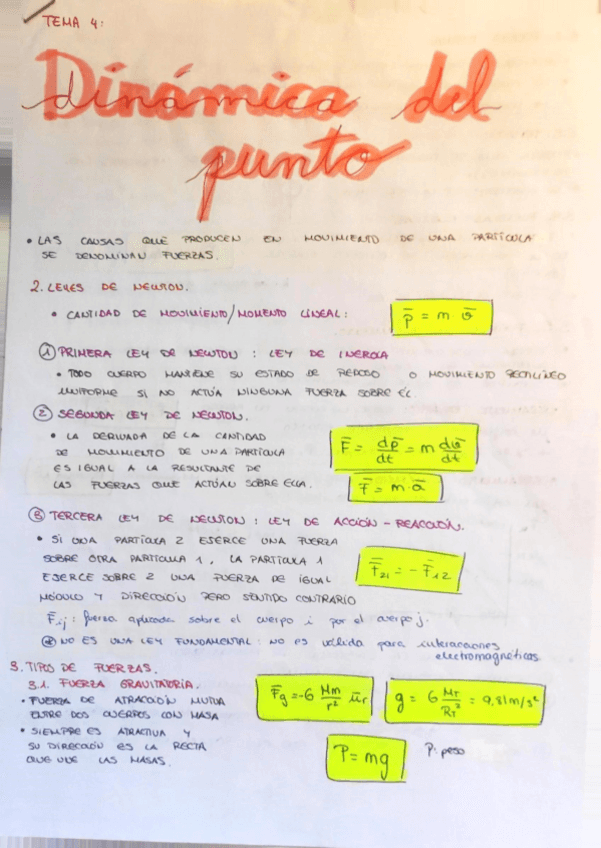 TEMA 4:
Dinámica del
punto
• LAS CAUSAS QUE PRODUCEN EN MOVIMIENTO DE UNA PARTÍCULA
SE DENOMINAN FUERZAS.
2. LEYES DE NEWTON.
• CANTIDAD DE MOVIMIENTO/MOMENTO LINEAL: p̄ = m v̄
① PRIMERA LEY DE NEWTON: LEY DE INERCIA
• TODO CUERPO MANTIENE SU ESTADO DE REPOSO O MOVIMIENTO RECTILÍNEO
UNIFORME SI NO ACTÚA NINGUNA FUERZA SOBRE ÉL
② SEGUNDA LEY DE NEWTON.
• LA DERIVADA DE LA CANTIDAD
DE MOVIMIENTO DE UNA PARTÍCULA
ES IGUAL A LA RESULTANTE DE
LAS FUERZAS QUE ACTÚAN SOBRE ELLA.
F̄ = dp̄/dt = m dv̄/dt
F̄ = m·ā
③ TERCERA LEY DE NEWTON: LEY DE ACCIÓN-REACCIÓN.
• SI UNA PARTÍCULA 2 EJERCE UNA FUERZA
SOBRE OTRA PARTÍCULA 1, LA PARTÍCULA 1
EJERCE SOBRE 2 UNA FUERZA DE IGUAL
MÓDULO Y DIRECCIÓN PERO SENTIDO CONTRARIO
F̄21 = - F̄12
F̄ij: fuerza aplicada sobre el cuerpo i por el cuerpo j.
NO ES UNA LEY FUNDAMENTAL: NO es válida para interacciones
electromagnéticas.
3. TIPOS DE FUERZAS.
3.1. FUERZA GRAVITATORIA.
• FUERZA DE ATRACCIÓN MUTUA
ENTRE DOS CUERPOS CON MASA
• SIEMPRE ES ATRACTIVA Y
SU DIRECCIÓN ES LA RECTA
QUE UNE LAS MASAS.
F̄g = -G Mm/r² ūr
g = G MT/RT² = 9,81 m/s²
P = mg
P: peso